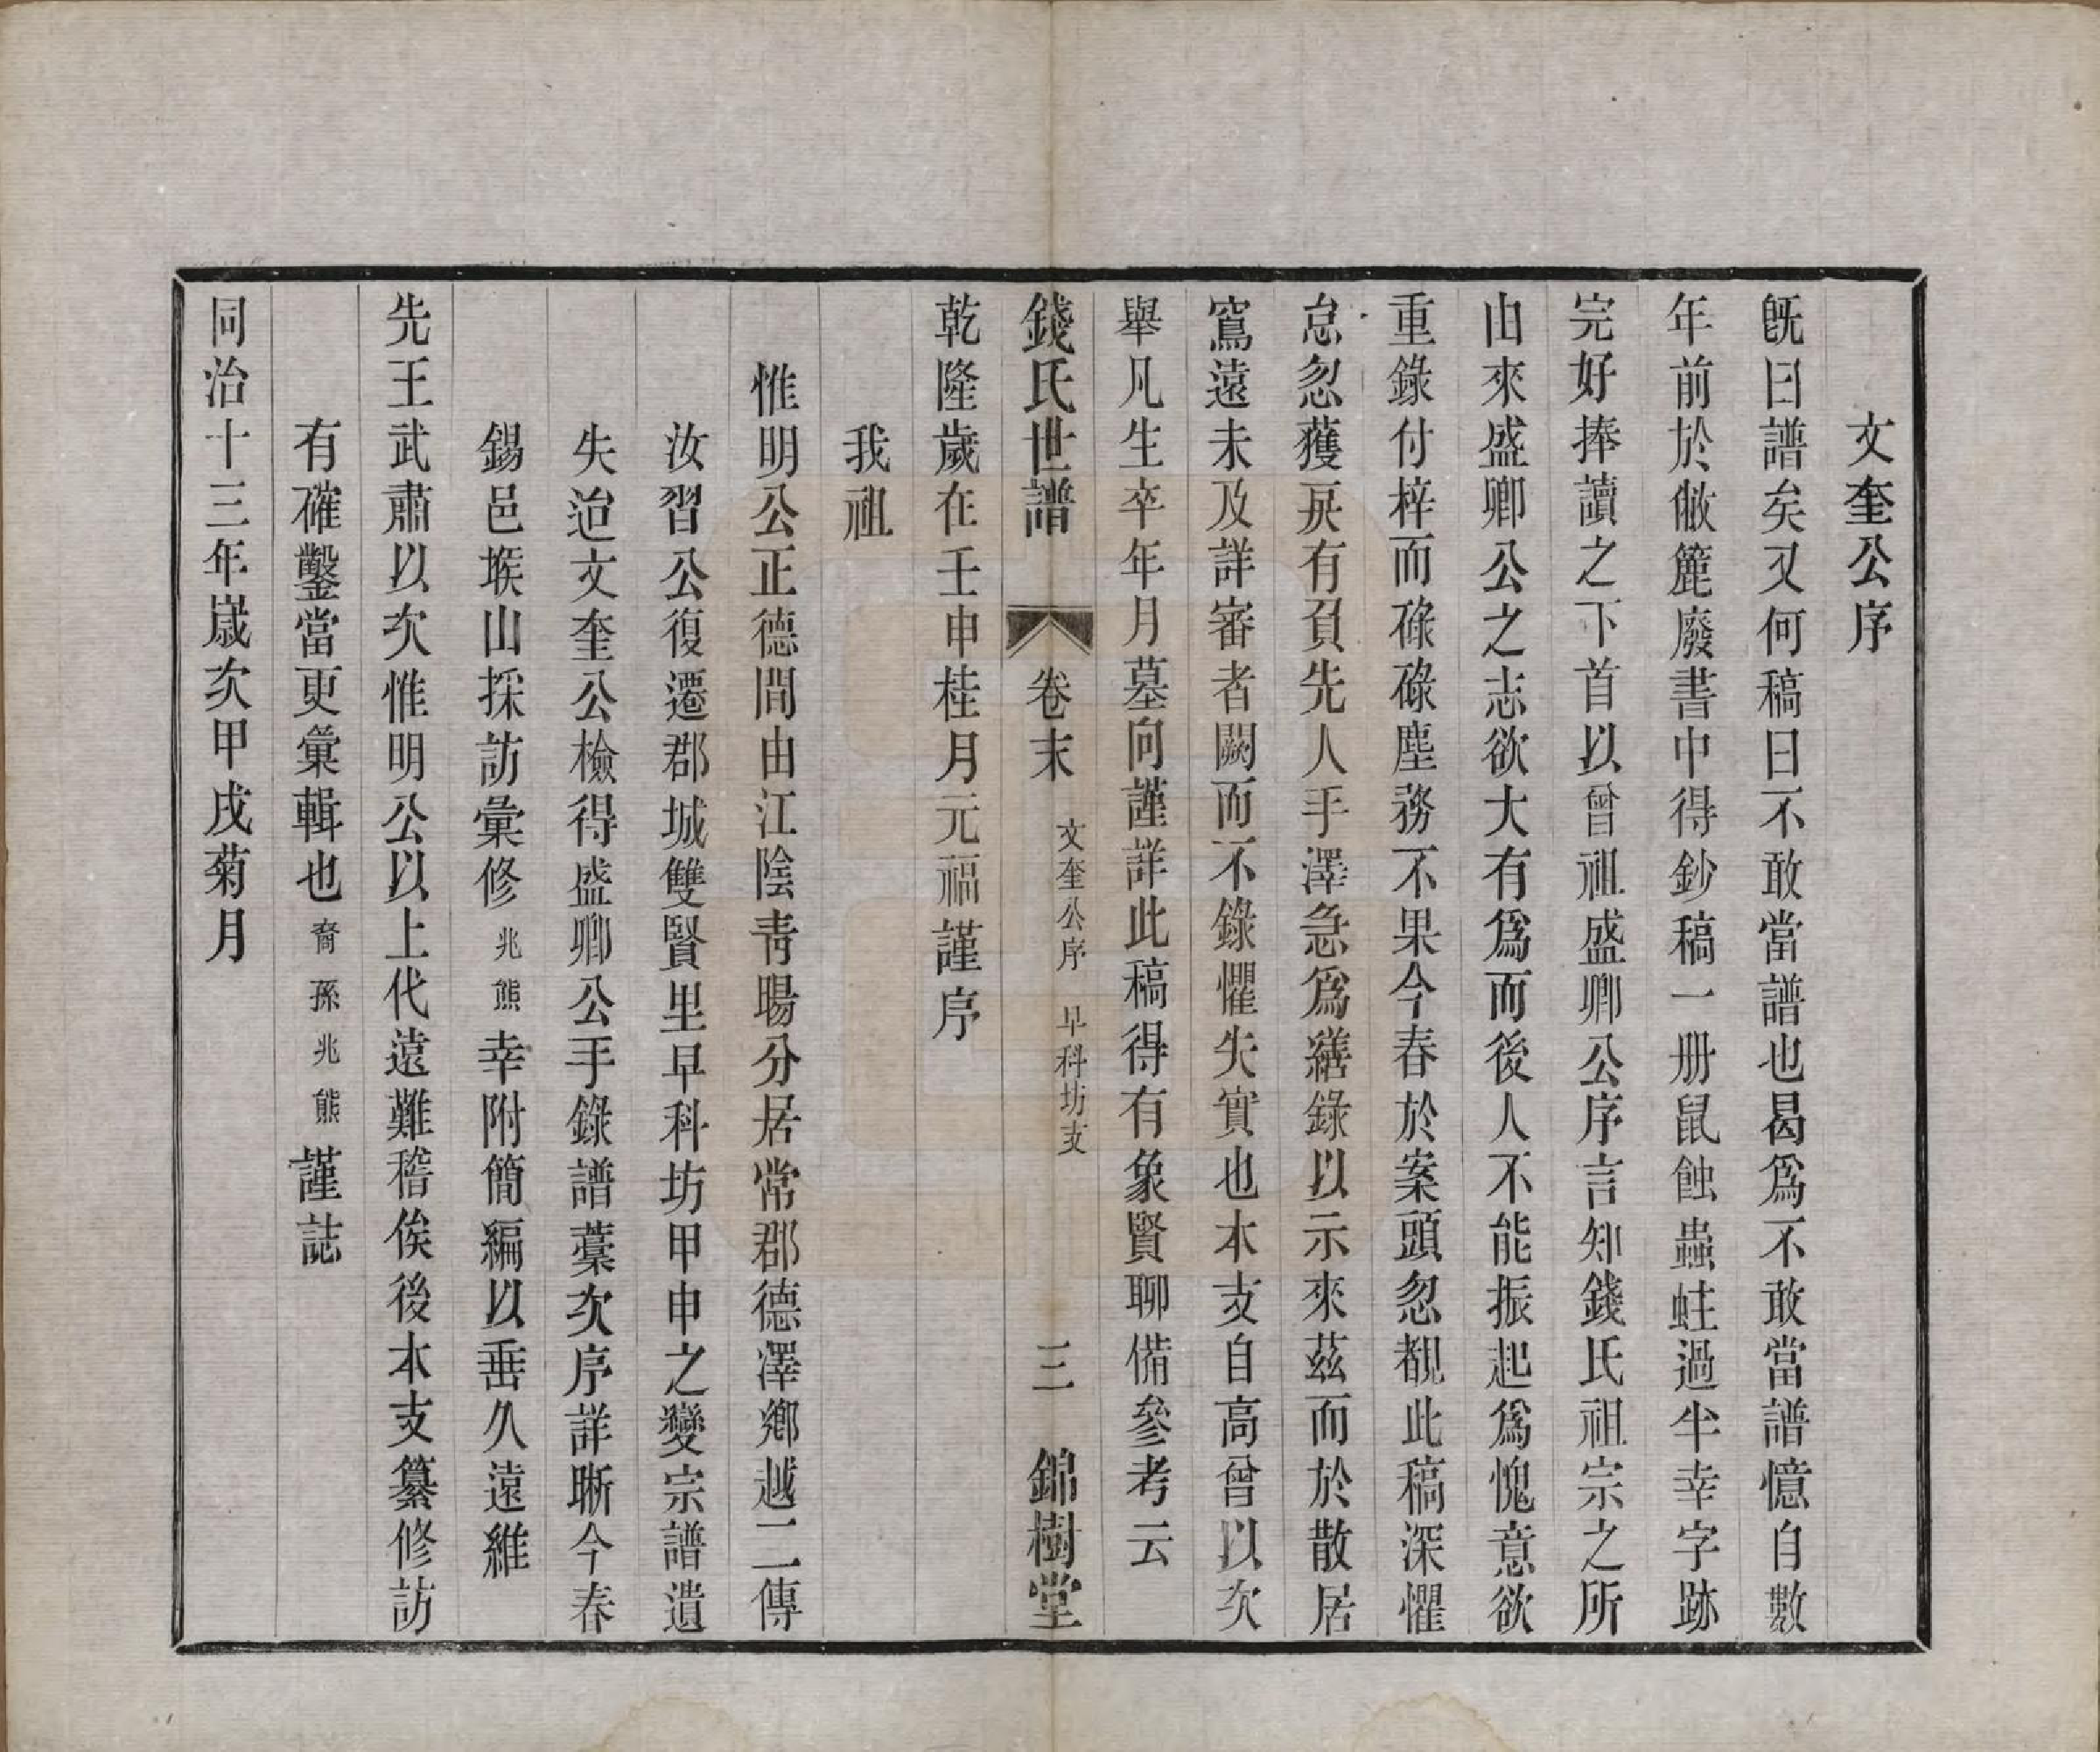 文奎公序
旣曰譜矣又何稿曰不敢當譜也曷爲不敢當譜憶自數
年前於敝簏廢書中得鈔稿一册鼠蝕蟲蛀過半幸字跡
完好捧讀之下首以曾祖盛卿公序言知錢氏祖宗之所
由來盛卿公之志欲大有爲而後人不能振起爲愧意欲
重錄付梓而碌碌塵務不果今春於案頭忽覩此稿深懼
怠忽獲戾有負先人手澤急爲繕錄以示來茲而於散居
窵遠未及詳審者闕而不錄懼失實也本支自高曾以次
舉凡生卒年月墓向謹詳此稿得有象賢聊備參考云
錢氏世譜 卷末 文奎公序 早科坊支 三 錦樹堂
乾隆歲在壬申桂月元福謹序
我祖
惟明公正德間由江陰靑暘分居常郡德澤鄉越二傳
汝習公復遷郡城雙賢里早科坊甲申之變宗譜遺
失迨文奎公檢得盛卿公手錄譜藁次序詳晰今春
錫邑堠山採訪彙修兆熊幸附簡編以垂久遠維
先王武肅以次惟明公以上代遠難稽俟後本支纂修訪
有確鑿當更彙輯也裔孫兆熊謹誌
同治十三年嵗次甲戌菊月